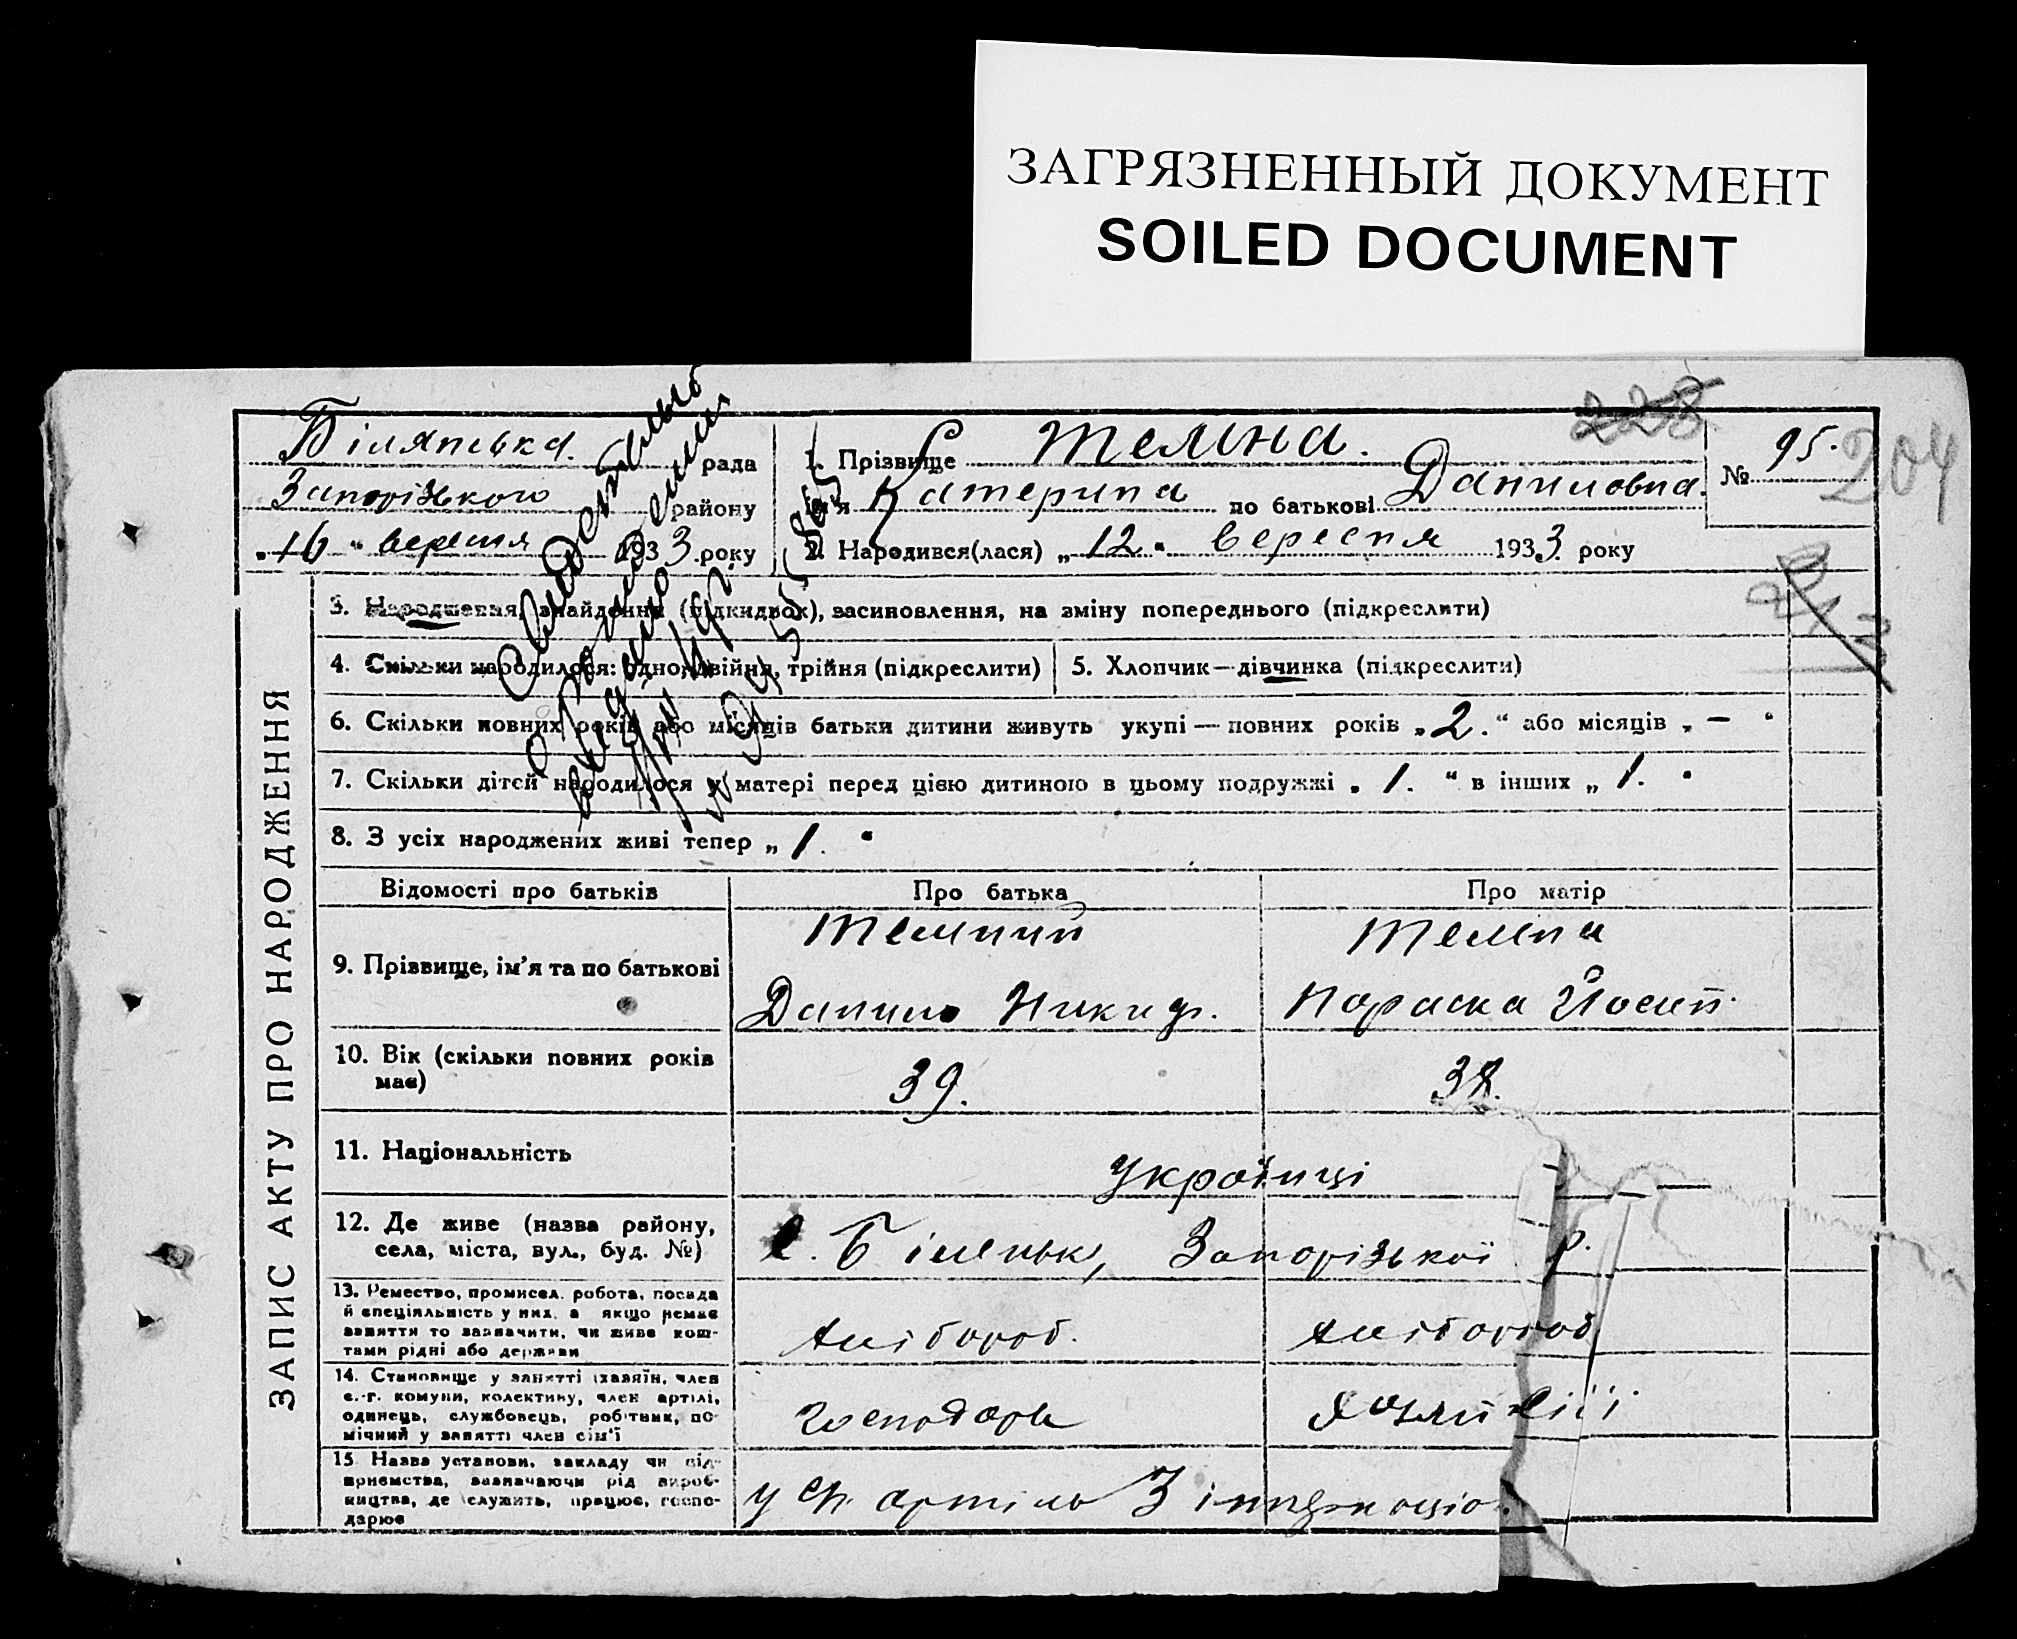 ЗАГРЯЗНЕННЫЙ ДОКУМЕНТ
SOILED DOCUMENT
223
204
рада
Запорізького району
„16“ вересня 1933 року
1. Прізвище Теліна.
ім'я Катерина по батькові Даниловна.
2. Народився(лася) „12“ вересня 1933 року
№ 95.
ЗАПИС АКТУ ПРО НАРОДЖЕННЯ
3. Народження, знайдення (підкидвок), засиновлення, на зміну попереднього (підкреслити)
4. Скільки народилося: одно, двійня, трійня (підкреслити)
5. Хлопчик—дівчинка (підкреслити)
6. Скільки повних років або місяців батьки дитини живуть укупі — повних років „2.“ або місяців „—“
7. Скільки дітей народилося у матері перед цією дитиною в цьому подружжі „1.“ в інших „1.“
8. З усіх народжених живі тепер „1.“
Відомості про батьків
Про батька
Про матір
9. Прізвище, ім'я та по батькові
Данило Никиф.
Теліна
Параска Йосип.
10. Вік (скільки повних років має)
39.
11. Національність
Українці
12. Де живе (назва району,
села, міста, вул., буд. №)
с. Біленьк, Запорізької р.
13. Ремество, промисел, робота, посада
й спеціяльність у них, а якщо немає
заняття то зазначити, чи живе кош-
тами рідні або держави
хлібороб.
хлібороб
14. Становище у занятті (хазяїн, член
с.-г. комуни, колективу, член артілі,
одинець, службовець, робітник, по-
мічний у занятті член сім'ї
господарь
15. Назва установи, закладу чи під-
приємства, зазначаючи рід вироб-
ництва, де служить, працює, госпо-
дарює
у с/г. артіль